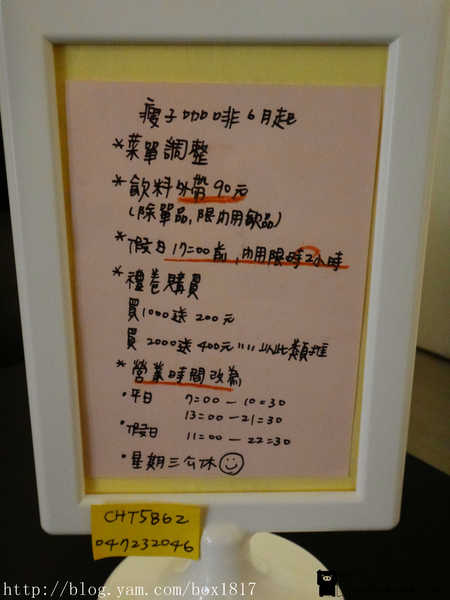 瘦子咖啡6月起
*菜單調整
*飲料外帶90元
(除單品,限內用飲品)
*假日17:00前,內用限時2小時
*禮卷購買
買1000送200元
買2000送400元""以此類推
*營業時間改為
·平日 7:00—10:30
13:00—21:30
·假日 11:00—22:30
·星期三公休
CHT5862
047232046
http://blog.yam.com/box1817